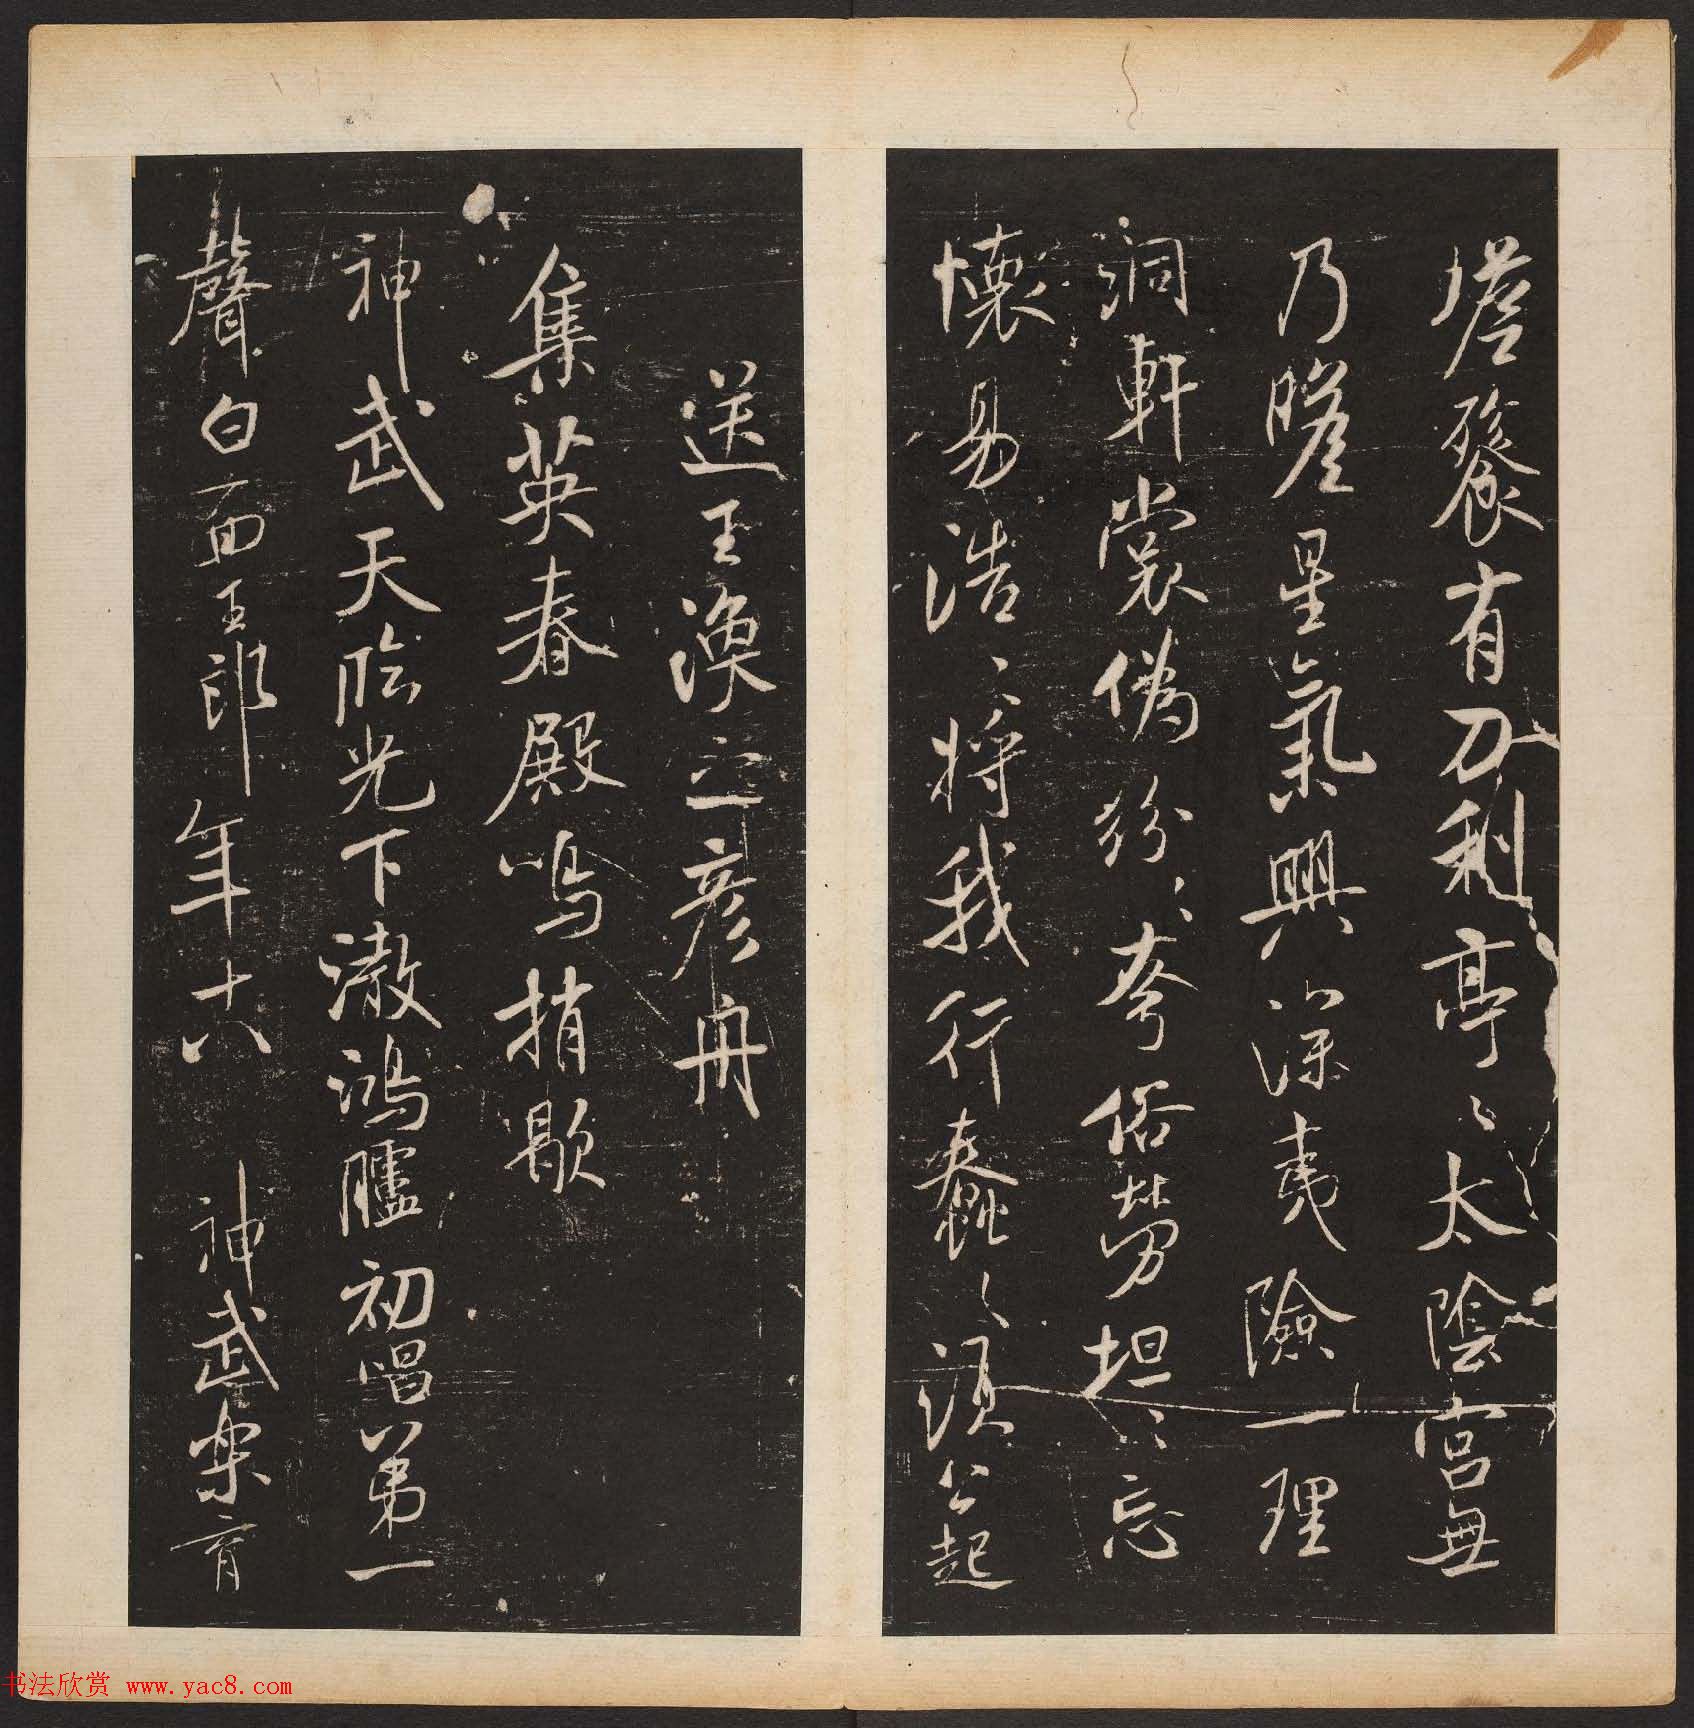 蟾餮有刀利亭〻太陰宮無
乃瞻星氣興深夷險一理
洞軒裳偽紛〻夸俗勞坦〻忘
懷易浩〻將我行蠢〻須公起
送王渙之彥舟
集英春殿鳴捎歇
神武天臨光下澈鴻臚初唱第一
聲白面王郎年十八 神武樂育
书法欣赏 www.yac8.com